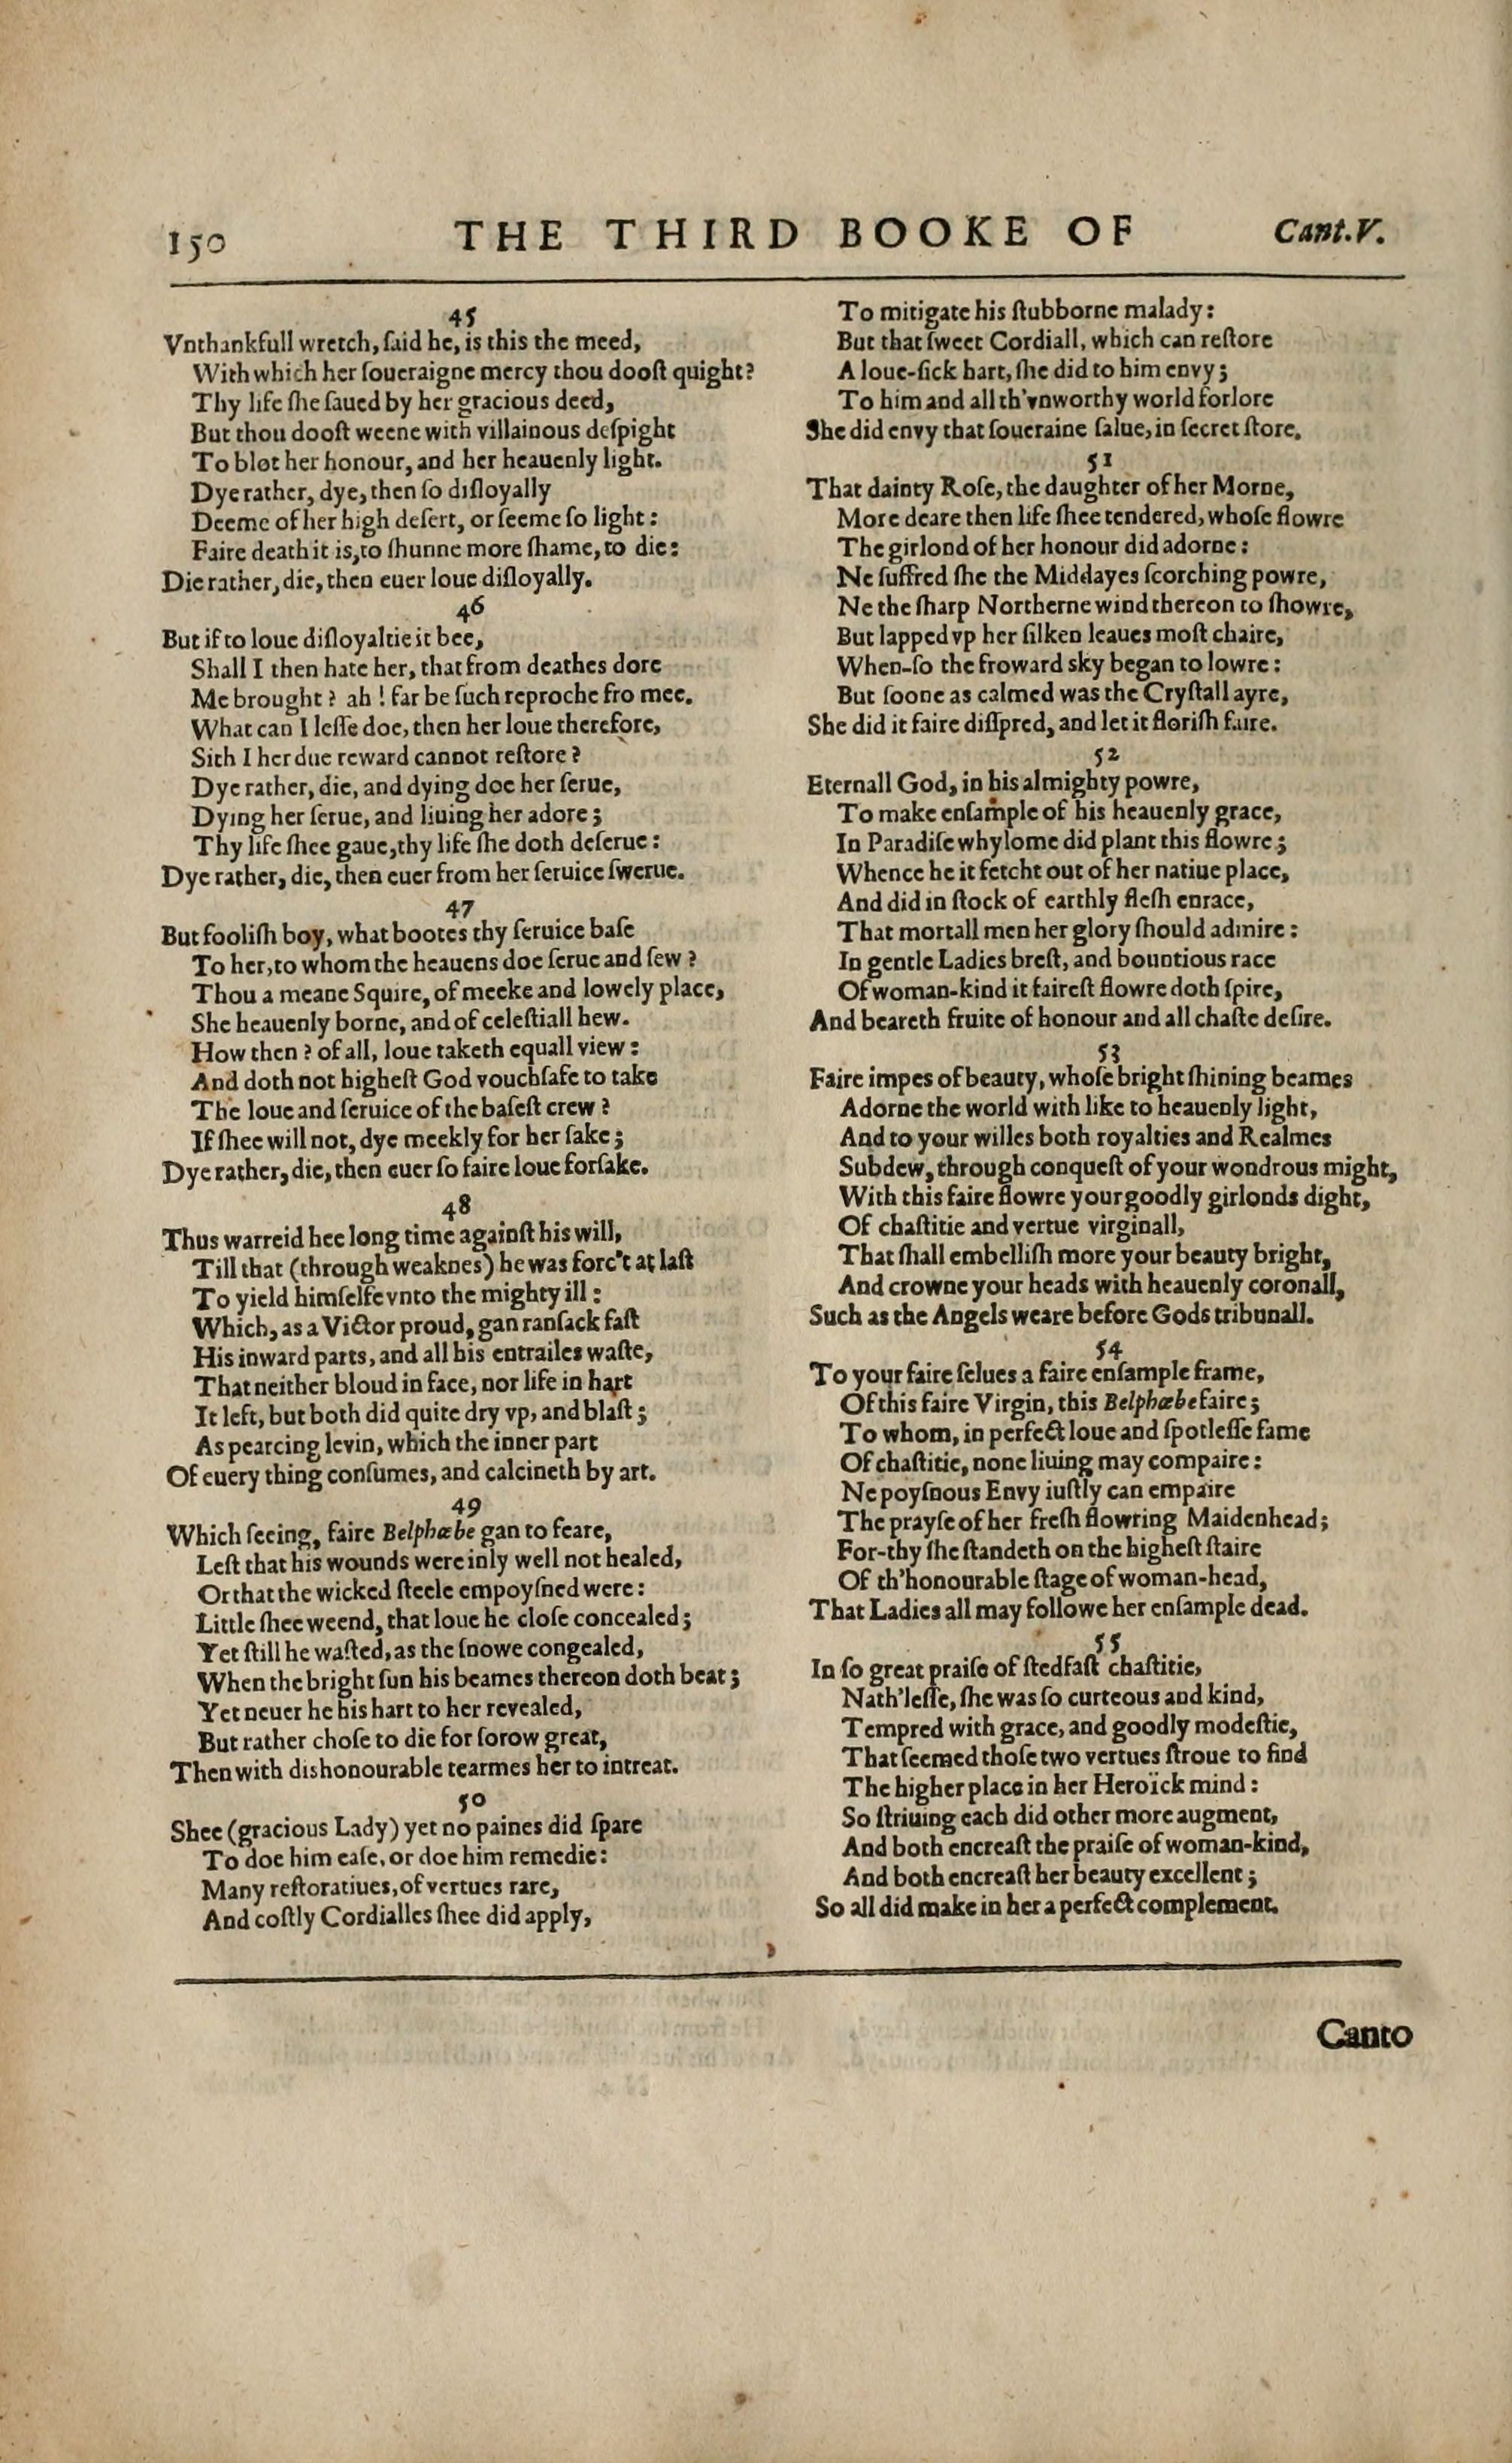 150 THE THIRD BOOKE OF Cant.V.
45
Vnthankfull wretch, ſaid he, is this the meed,
With which her ſoueraigne mercy thou dooſt quight?
Thy life ſhe ſaued by her gracious deed,
But thou dooſt weene with villainous deſpight
To blot her honour, and her heauenly light.
Dye rather, dye, then ſo diſloyally
Deeme of her high deſert, or ſeeme ſo light:
Faire death it is, to ſhunne more ſhame, to die:
Die rather, die, then euer loue diſloyally.
46
But if to loue diſloyaltie it bee,
Shall I then hate her, that from deathes dore
Me brought? ah! far be ſuch reproche fro mee.
What can I leſſe doe, then her loue therefore,
Sith I her due reward cannot reſtore?
Dye rather, die, and dying doe her ſerue,
Dying her ſerue, and liuing her adore;
Thy life ſhee gaue, thy life ſhe doth deſerue:
Dye rather, die, then euer from her ſeruice ſwerue.
47
But fooliſh boy, what bootes thy ſeruice baſe
To her, to whom the heauens doe ſerue and ſew?
Thou a meane Squire, of meeke and lowely place,
She heauenly borne, and of celeſtiall hew.
How then? of all, loue taketh equall view:
And doth not higheſt God vouchſafe to take
The loue and ſeruice of the baſeſt crew?
If ſhee will not, dye meekly for her ſake;
Dye rather, die, then euer ſo faire loue forſake.
48
Thus warreid hee long time againſt his will,
Till that (through weaknes) he was forc't at laſt
To yield himſelfe vnto the mighty ill:
Which, as a Victor proud, gan ranſack faſt
His inward parts, and all his entrailes waſte,
That neither bloud in face, nor life in hart
It left, but both did quite dry vp, and blaſt;
As pearcing levin, which the inner part
Of euery thing conſumes, and calcineth by art.
49
Which ſeeing, faire Belphœbe gan to feare,
Leſt that his wounds were inly well not healed,
Or that the wicked ſteele empoyſned were:
Little ſhee weend, that loue he cloſe concealed;
Yet ſtill he waſted, as the ſnowe congealed,
When the bright ſun his beames thereon doth beat;
Yet neuer he his hart to her revealed,
But rather choſe to die for ſorow great,
Then with dishonourable tearmes her to intreat.
50
Shee (gracious Lady) yet no paines did ſpare
To doe him eaſe, or doe him remedie:
Many reſtoratiues, of vertues rare,
And coſtly Cordialles ſhee did apply,
To mitigate his ſtubborne malady:
But that ſweet Cordiall, which can reſtore
A loue-ſick hart, ſhe did to him envy;
To him and all th'vnworthy world forlore
She did envy that ſoueraine ſalue, in ſecret ſtore.
51
That dainty Roſe, the daughter of her Morne,
More deare then life ſhee tendered, whoſe flowre
The girlond of her honour did adorne:
Ne ſuffred ſhe the Middayes ſcorching powre,
Ne the ſharp Northerne wind thereon to ſhowre,
But lapped vp her ſilken leaues moſt chaire,
When-ſo the froward sky began to lowre:
But ſoone as calmed was the Cryſtall ayre,
She did it faire diſpred, and let it floriſh faire.
52
Eternall God, in his almighty powre,
To make enſample of his heauenly grace,
In Paradiſe whylome did plant this flowre;
Whence he it fetcht out of her natiue place,
And did in ſtock of earthly fleſh enrace,
That mortall men her glory ſhould admire:
In gentle Ladies breſt, and bountious race
Of woman-kind it faireſt flowre doth ſpire,
And beareth fruite of honour and all chaſte deſire.
53
Faire impes of beauty, whoſe bright ſhining beames
Adorne the world with like to heauenly light,
And to your willes both royalties and Realmes
Subdew, through conqueſt of your wondrous might,
With this faire flowre your goodly girlonds dight,
Of chaſtitie and vertue virginall,
That ſhall embelliſh more your beauty bright,
And crowne your heads with heauenly coronall,
Such as the Angels weare before Gods tribunall.
54
To your faire ſelues a faire enſample frame,
Of this faire Virgin, this Belphœbe faire;
To whom, in perfect loue and ſpotleſſe fame
Of chaſtitie, none liuing may compaire:
Ne poyſnous Envy iuſtly can empaire
The prayſe of her freſh flowring Maidenhead;
For-thy ſhe ſtandeth on the higheſt ſtaire
Of th'honourable ſtage of woman-head,
That Ladies all may followe her enſample dead.
55
In ſo great praiſe of ſtedfaſt chaſtitie,
Nath'leſſe, ſhe was ſo curteous and kind,
Tempred with grace, and goodly modeſtie,
That ſeemed thoſe two vertues ſtroue to find
The higher place in her Heroïck mind:
So ſtriuing each did other more augment,
And both encreaſt the praiſe of woman-kind,
And both encreaſt her beauty excellent;
So all did make in her a perfect complement.
Canto